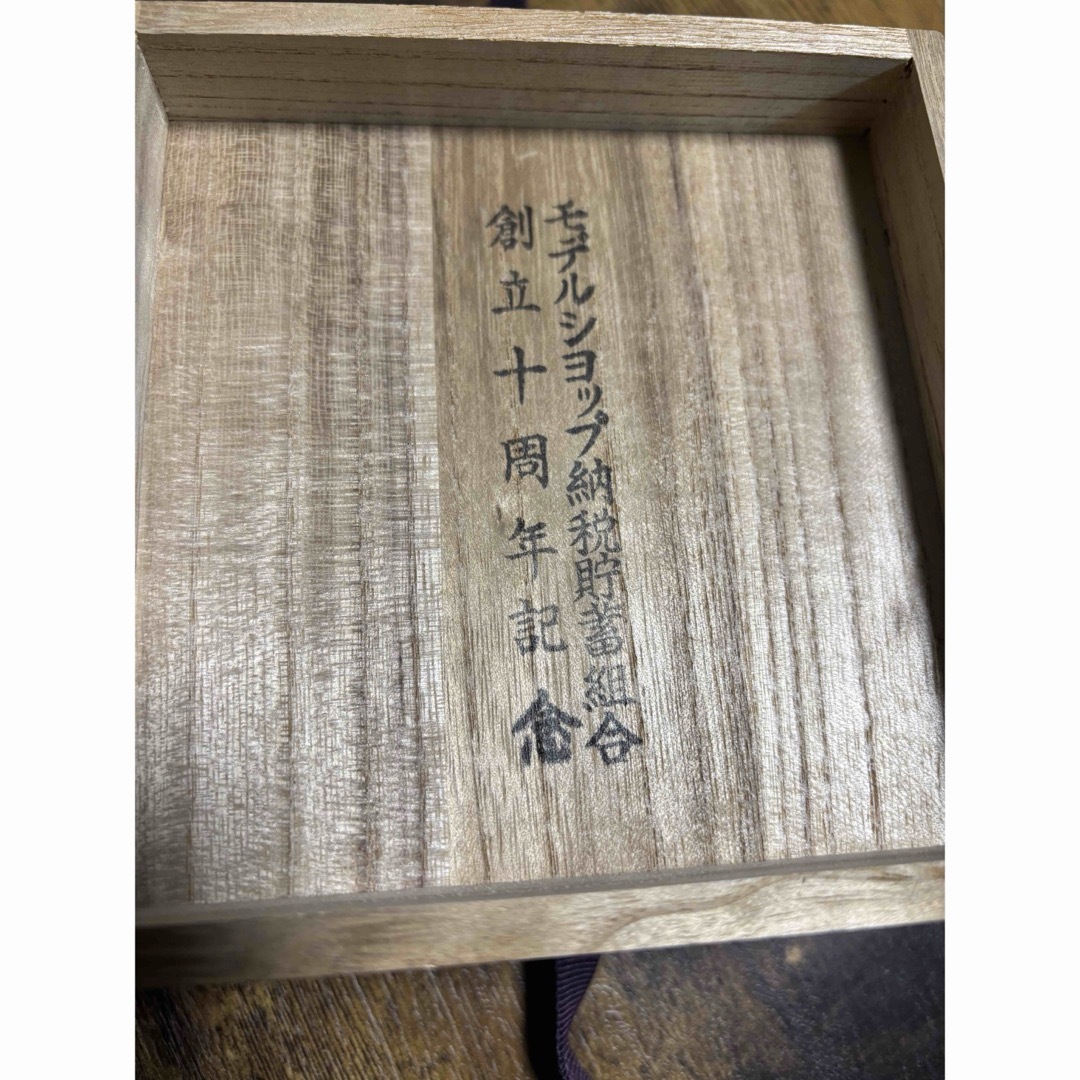 モデルショップ納税貯蓄組合
創立十周年記念